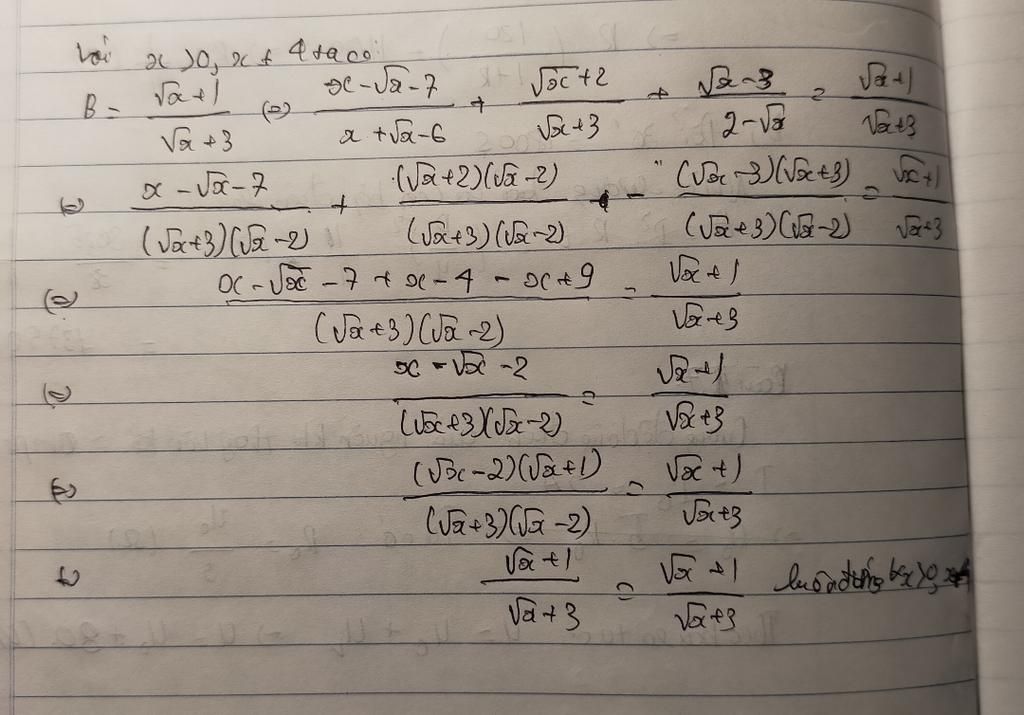 Với x > 0, x ≠ 4 ta có:
B = (√x+1)/(√x+3) ⇔ (x-√x-7)/(x+√x-6) + (√x+2)/(√x+3) + (√x-3)/(2-√x) = (√x+1)/(√x+3)
⇔ (x-√x-7)/((√x+3)(√x-2)) + ((√x+2)(√x-2))/((√x+3)(√x-2)) - ((√x-3)(√x+3))/((√x+3)(√x-2)) = (√x+1)/(√x+3)
⇔ (x-√x-7+x-4-x+9)/((√x+3)(√x-2)) = (√x+1)/(√x+3)
⇔ (x-√x-2)/((√x+3)(√x-2)) = (√x+1)/(√x+3)
⇔ ((√x-2)(√x+1))/((√x+3)(√x-2)) = (√x+1)/(√x+3)
⇔ (√x+1)/(√x+3) = (√x+1)/(√x+3) luôn đúng ∀x>0,